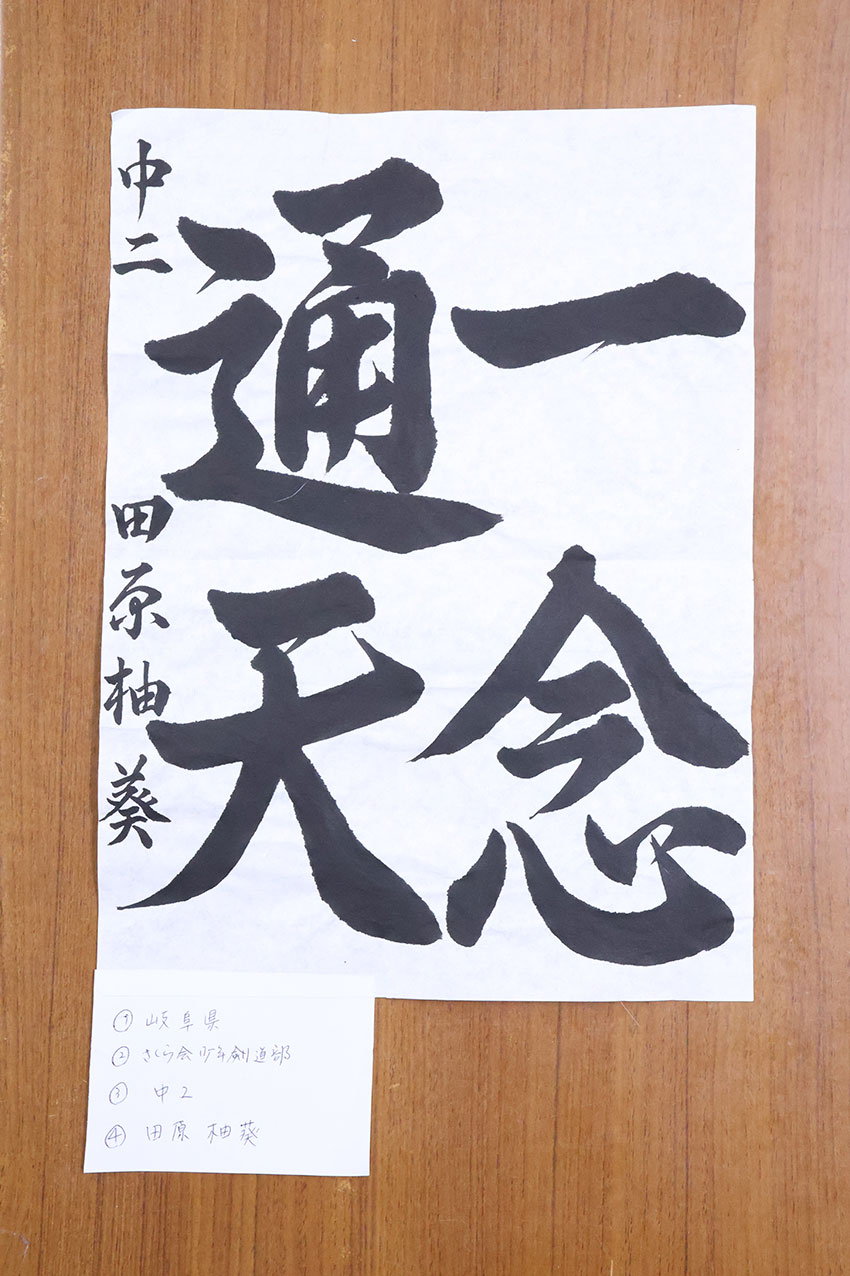 一念
通天
中二 田原柚葵
① 岐阜県
② さくら会少年剣道部
③ 中2
④ 田原 柚葵